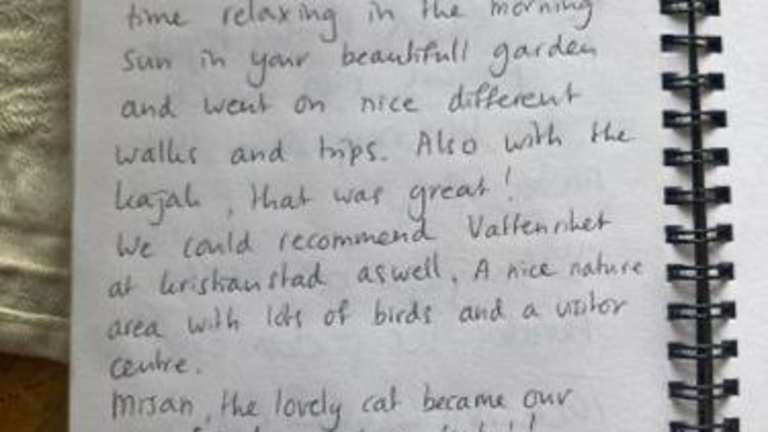 time relaxing in the morning
sun in your beautifull garden
and went on nice different
walks and trips. Also with the
kajak, that was great!
We could recommend Vattenriket
at kristianstad aswell. A nice nature
area with lots of birds and a visitor
centre.
Misan, the lovely cat became our